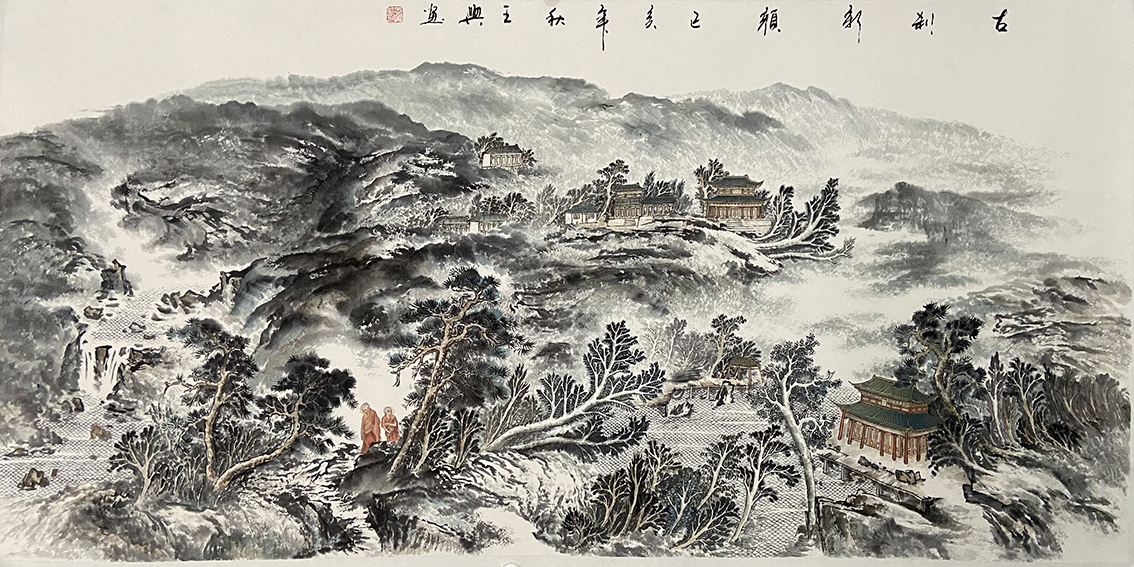 古刹新颜己亥年秋王兴画